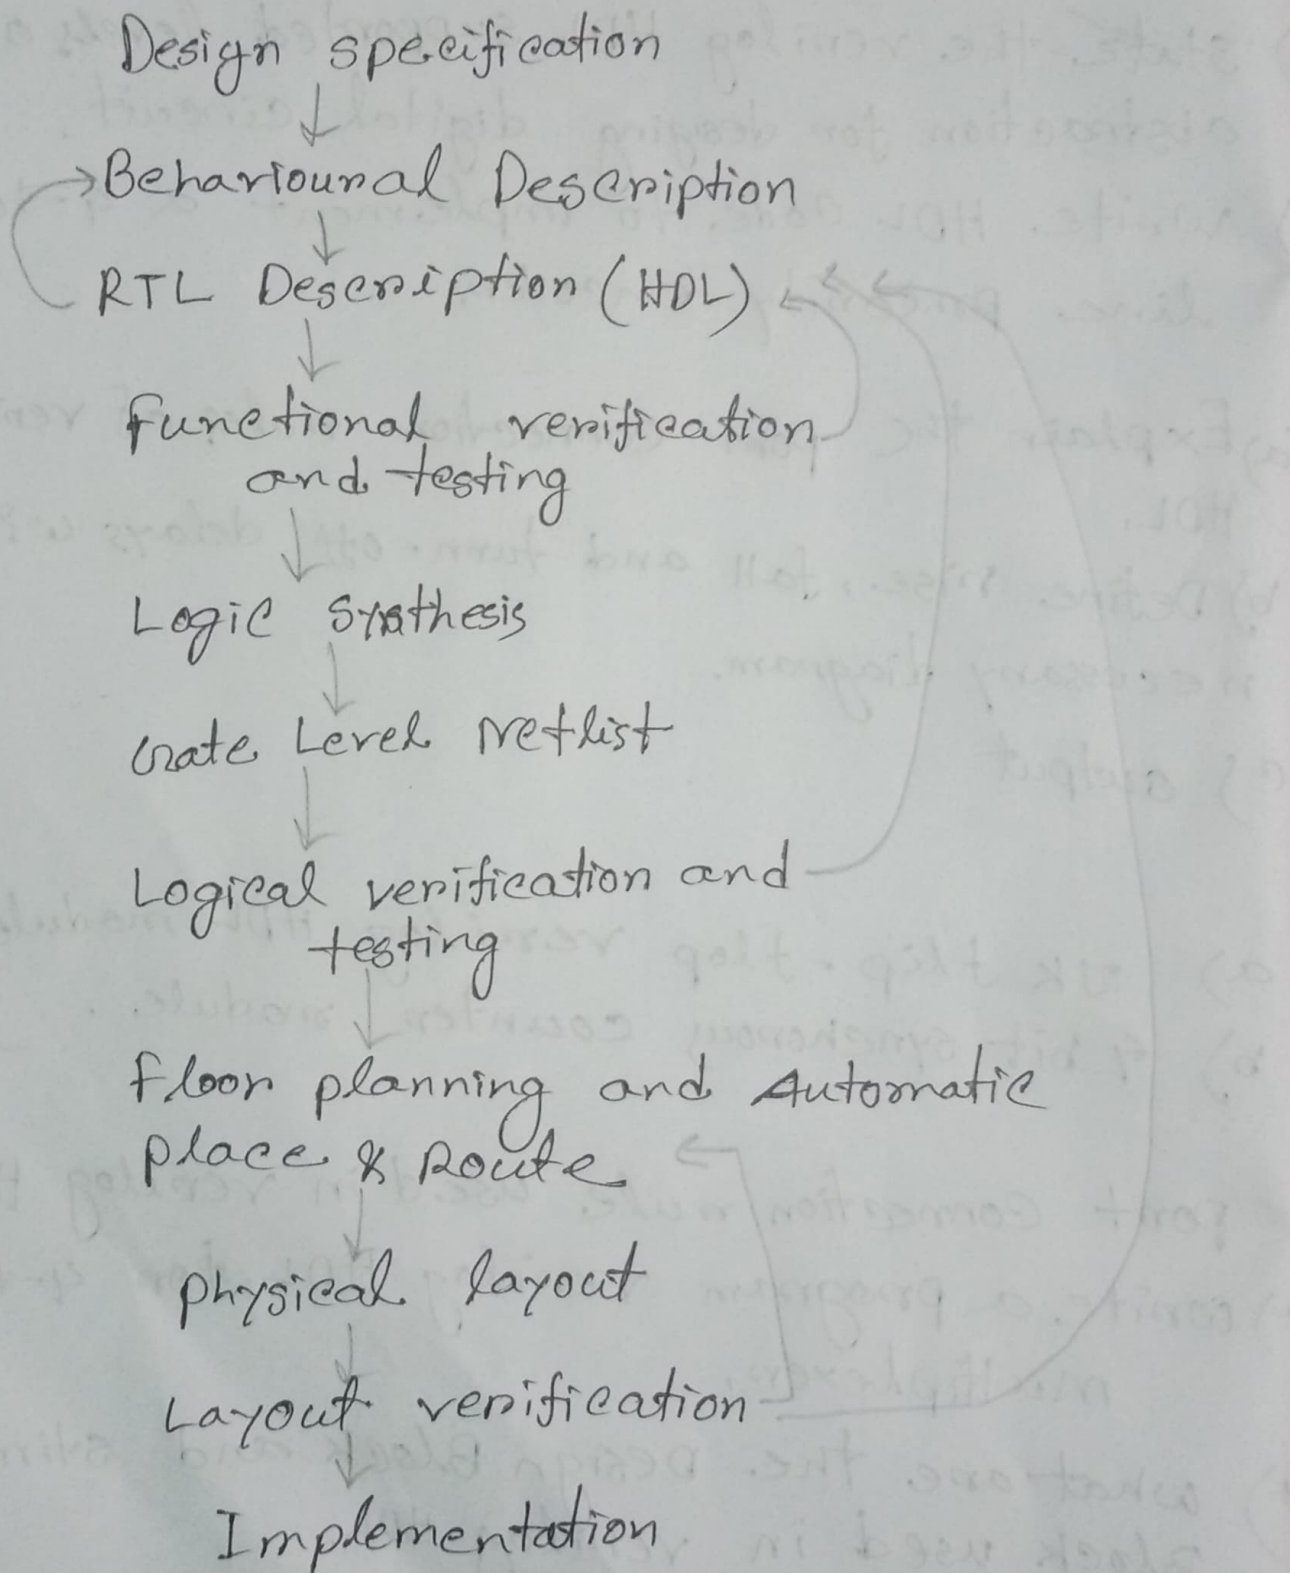 Design specification
Behavioural Description
RTL Description (HDL)
Functional verification
and testing
Logic Synthesis
Gate Level Netlist
Logical verification and
testing
Floor planning and Automatic
place & Route
physical layout
Layout verification
Implementation